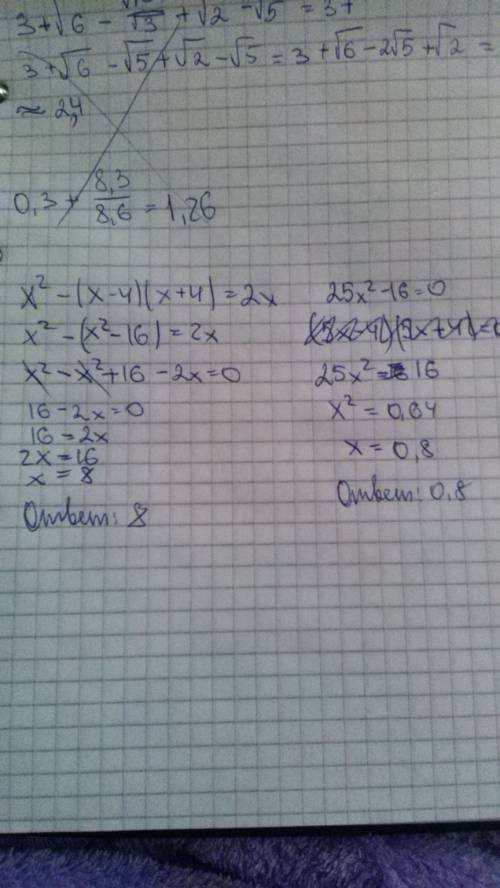 3+√6 - /√3 + √2 - √5 = 3+
3+√6 - √5 + √2 - √5 = 3+√6-2√5+√2 =
≈ 2,4
0,3 + 8,3/8,6 = 1,26
x² - (x-4)(x+4) = 2x
x² - (x²-16) = 2x
x² - x² + 16 - 2x = 0
16 - 2x = 0
16 = 2x
2x = 16
x = 8
Ответ: 8
25x² - 16 = 0
25x² = 16
x² = 0,64
x = 0,8
Ответ: 0,8